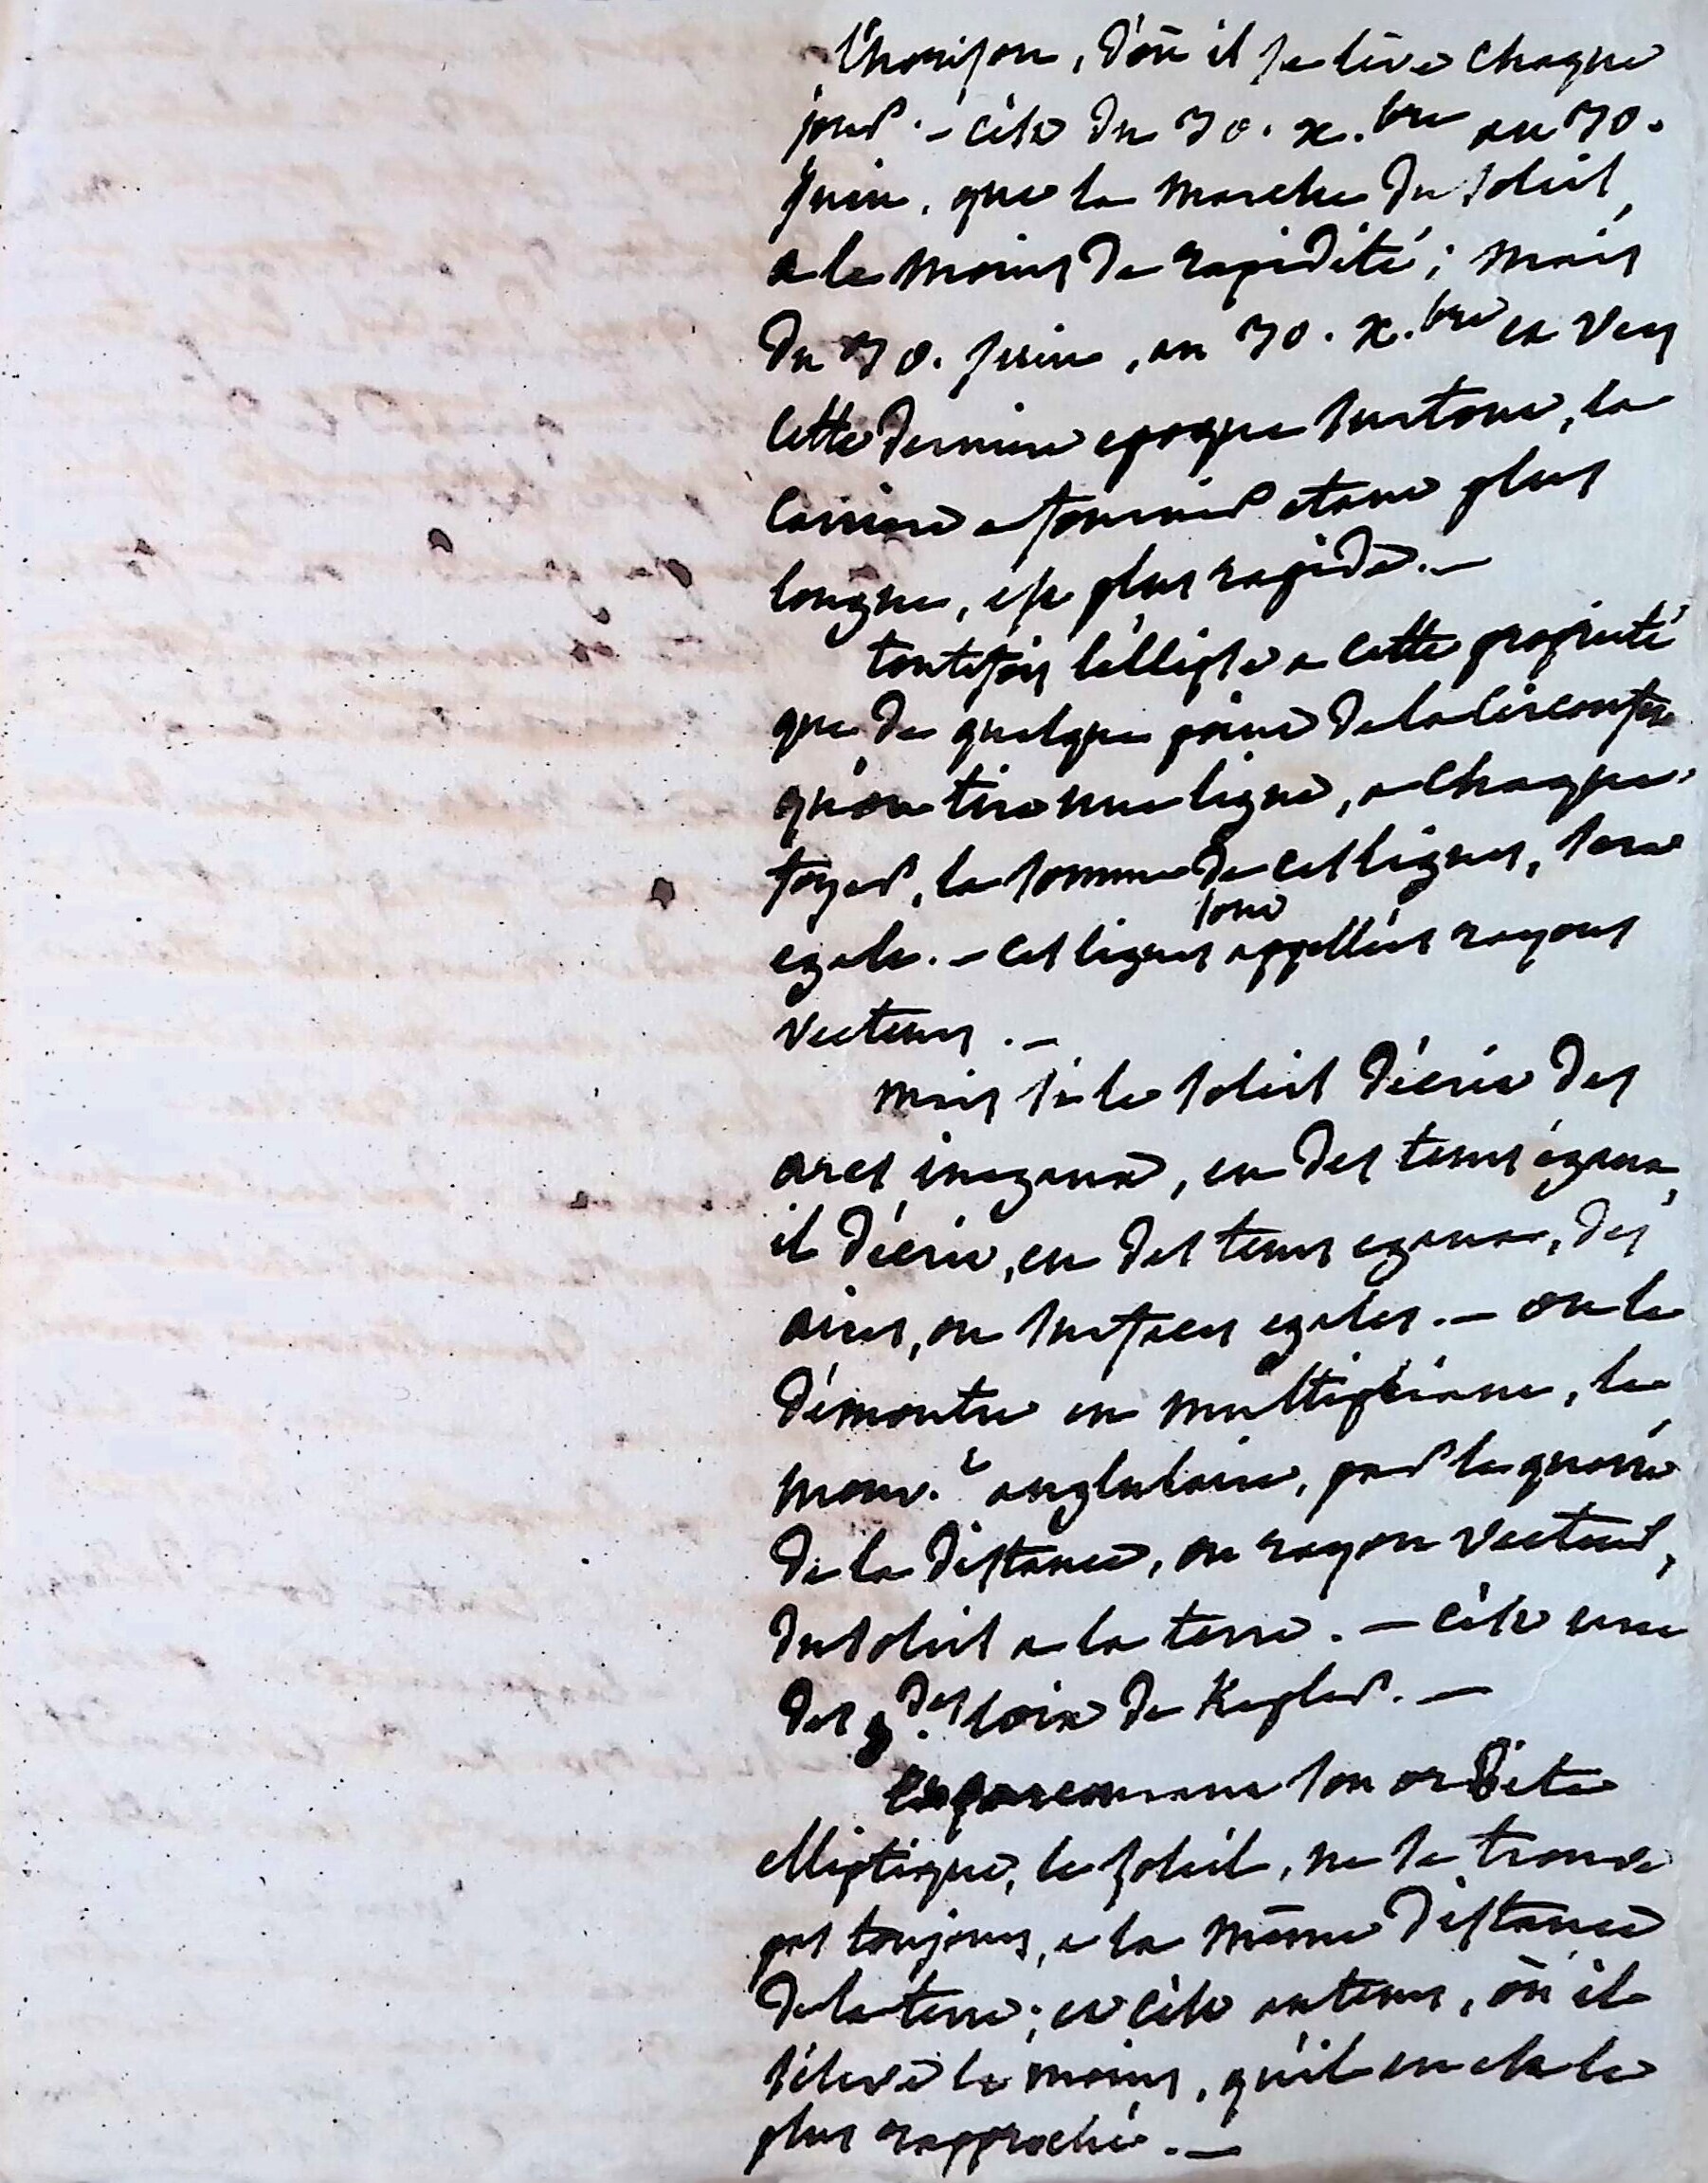 l'horison, d'où il se lève chaque
jour. – c'est du 30. x.bre au 30.
juin, que la marche du soleil,
a le moins de rapidité; mais
du 30. juin, au 30. x.bre et vers
cette derniere epoque surtout, la
carriere a fournir etant plus
longue, est plus rapide. –
toutefois l'éllipse a cette proprieté
que de quelque point de la circonfce
qu'on tire une ligne, a chaque
foyer, la somme de ces lignes, sera
egale. – ces lignes sont appellées rayons
vecteurs. –
mais si le soleil décrit des
arcs inegaux, en des tems égaux,
il décrit, en des tems egaux, des
aires, ou surfaces egales. – on le
démontre en multipliant, le
mouv.t anglulaire, par le quarré
de la distance, ou rayon vecteur,
du soleil a la terre. – c'est une
des g.des loix de Kepler. –
En parcourant son orbite
elliptique, le soleil, ne se trouve
pas toujours, a la même distance
de la terre; et c'est au tems, où il
s'éleve le moins, qu'il en est le
plus rapproché. –